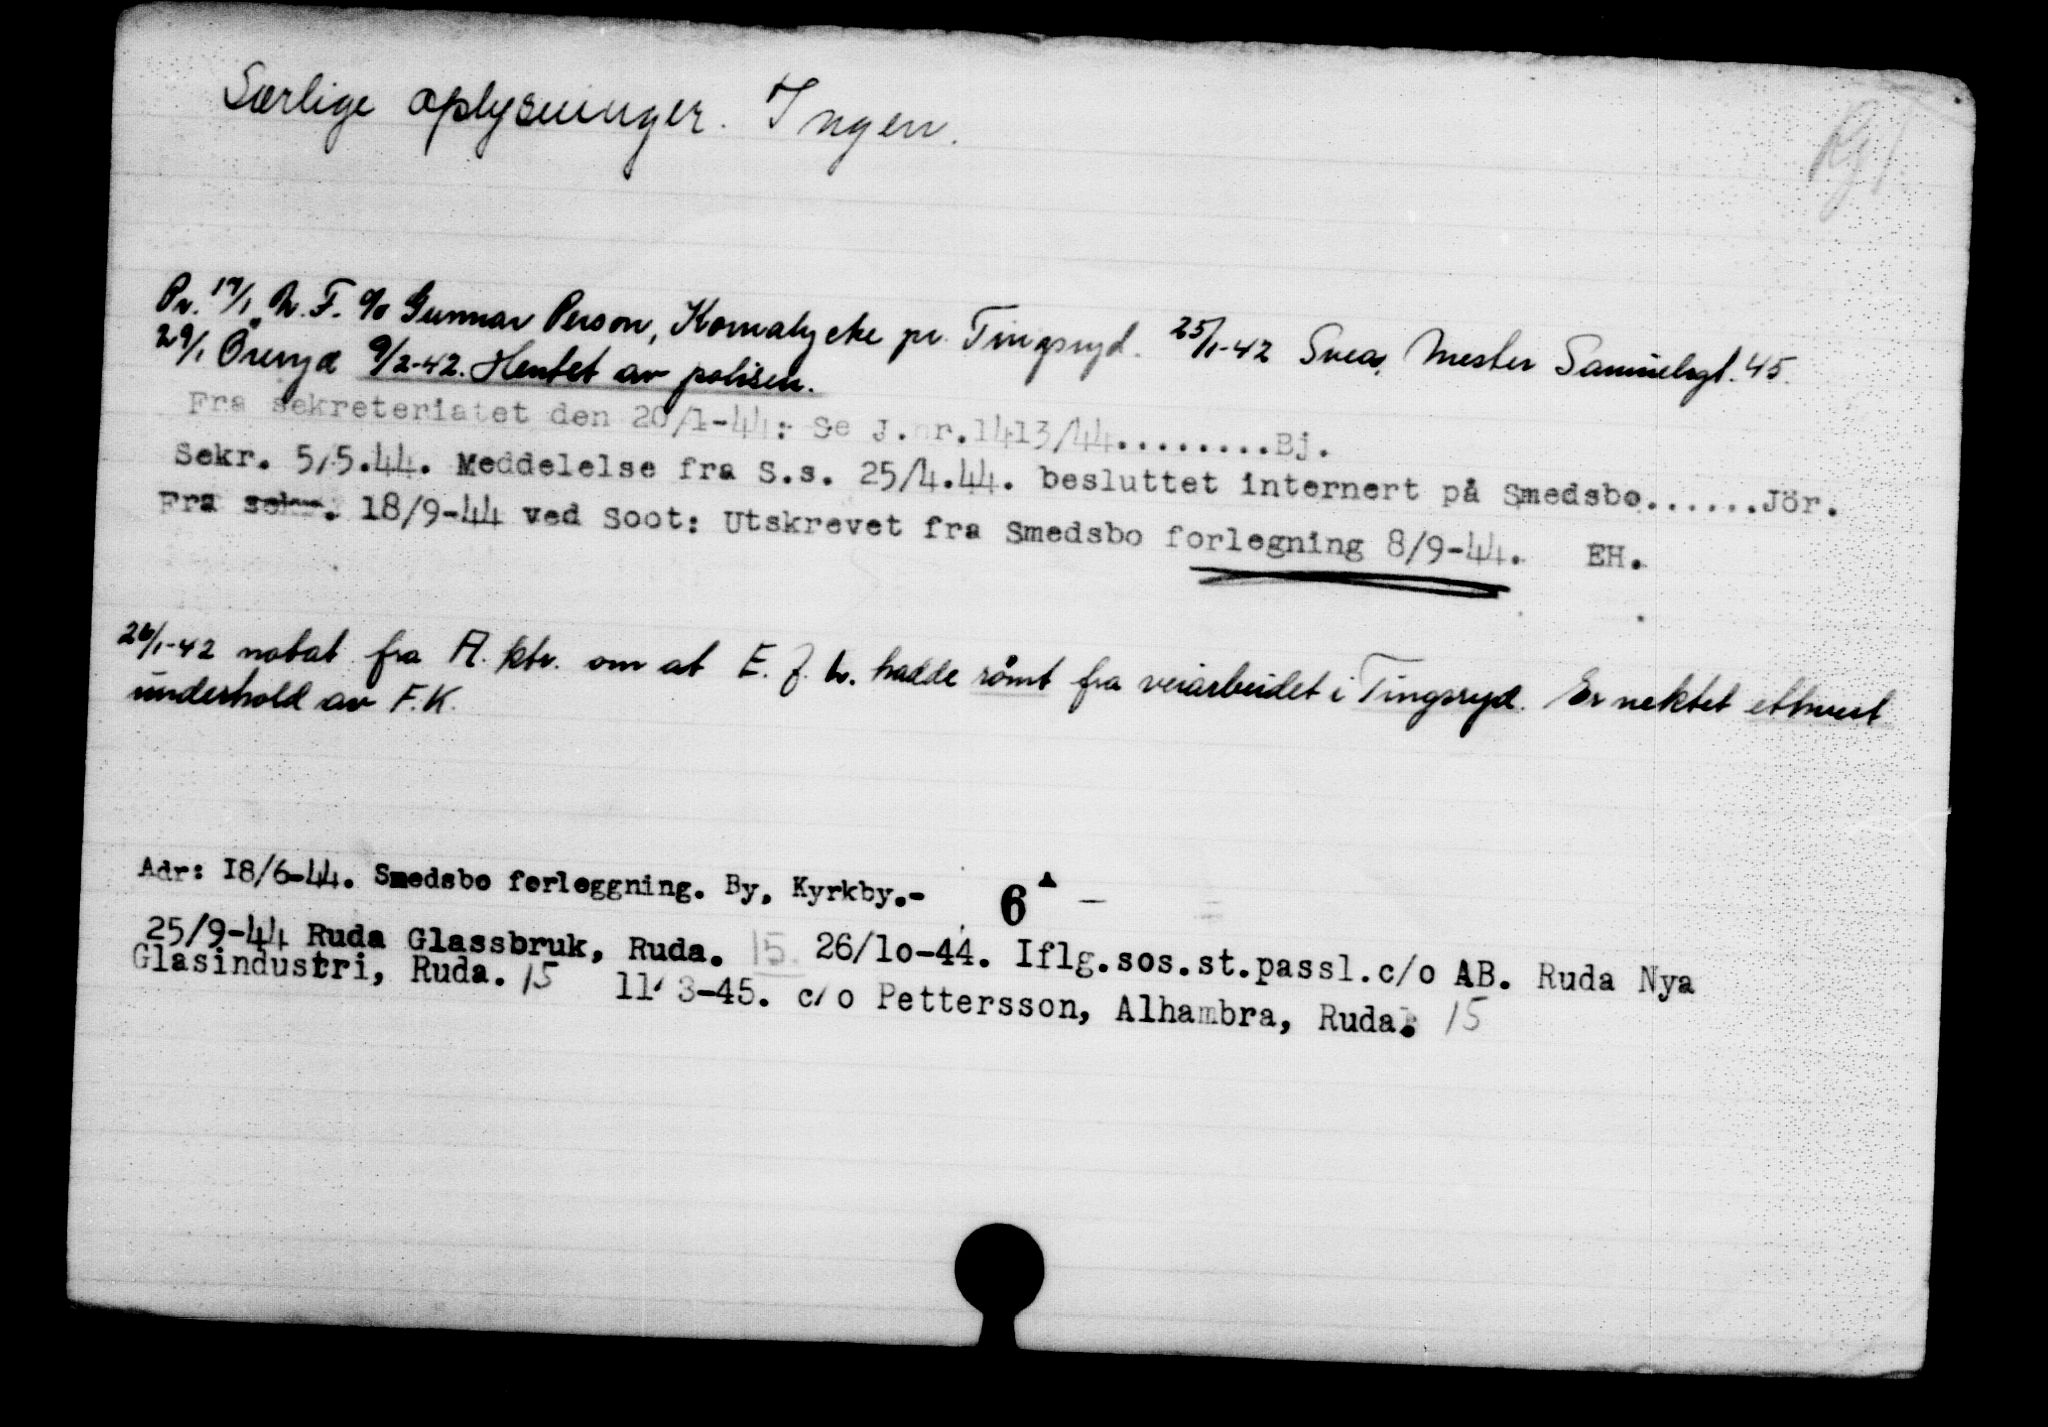 Særlige oplysninger. Ingen.
Pr. 17/1 N. F. c/o Gunnar Person, Komalycke pr. Tingsryd. 25/1-42 Svea, Mester Samuelsgt. 45.
29/1 Öreryd 9/2-42. Hentet av polisen.
Fra sekreteriatet den 20/1-44: Se J.nr.1413/44........Bj.
Sekr. 5/5.44. Meddelelse fra S.s. 25/4.44. besluttet internert på Smedsbo......Jör.
Fra sekr. 18/9-44 ved Soot: Utskrevet fra Smedsbo forlegning 8/9-44. EH.
26/1-42 notat fra A. ktr. om at E. f. h. hadde römt fra veiarbeidet i Tingsryd. Er nektet ethvert
underhold av F.K.
Adr: I8/6-44. Smedsbo forleggning. By, Kyrkby.- 6 -
25/9-44 Ruda Glassbruk, Ruda. 15. 26/lo-44. Iflg.sos.st.passl.c/o AB. Ruda Nya
Glasindustri, Ruda. 15 11/3-45. c/o Pettersson, Alhambra, Ruda. 15